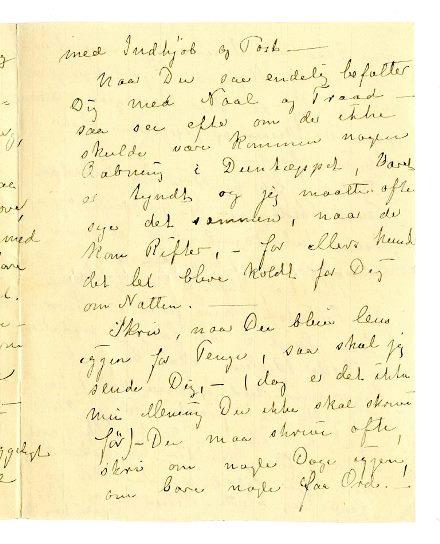 med Indkjøb og Post —
Naar Du saa endelig befatter
Dig med Naal og Traad —
saa see efte om der ikke
skulde være kommen nogen
Aabning i Duntæppet, Varet
er tyndt og jeg maatte ofte
sye det sammen, naar de
kom Rifter, – for ellers kund
det let bleve koldt for Dig
om Natten. —
Skriv, naar Du bleiv lens
iggen for Penge, saa skal jeg
sende Dig, – (dog er det ikke
min Mening Du ikke skal skrive
för) – Du maa skrive ofte,
skriv om nogle Dage iggen,
om bare nogle faa Ord. –
med